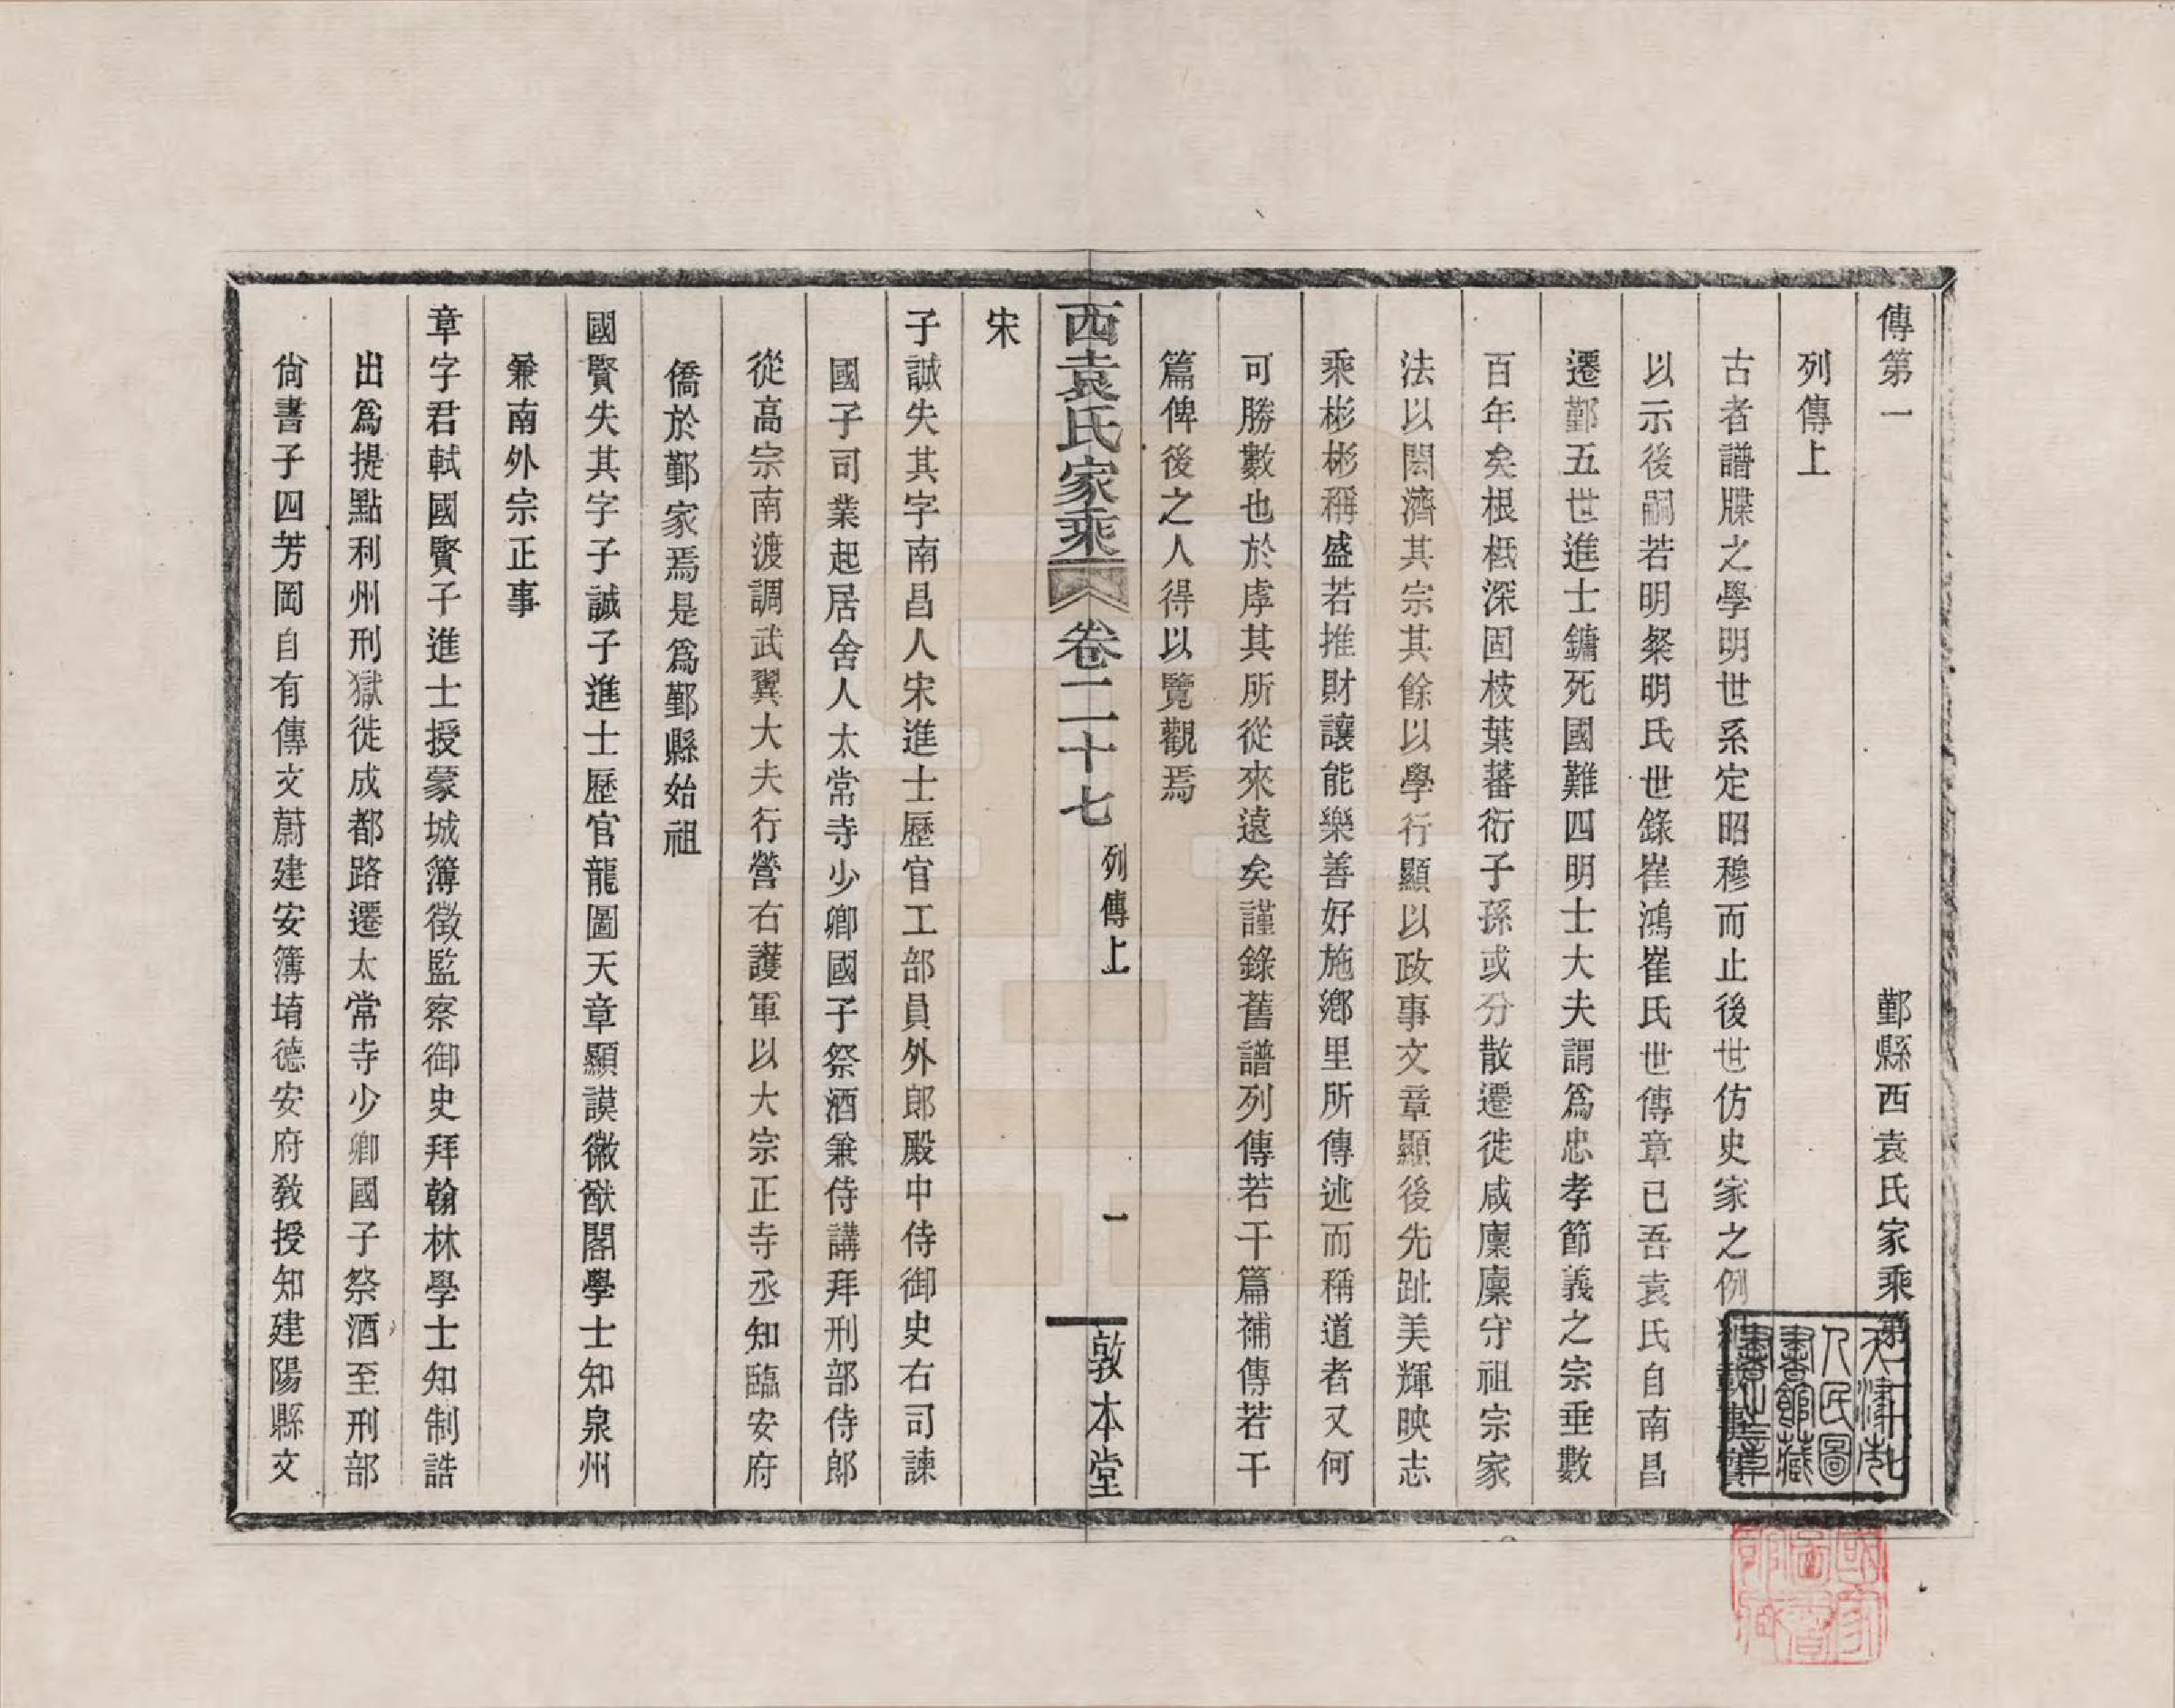 傳第一 鄞縣西袁氏家乘第
列傳上
古者譜牒之學明世系定昭穆而止後世仿史家之例
以示後嗣若明粲明氏世錄崔鴻崔氏世傳章已吾袁氏自南昌
遷鄞五世進士鏞死國難四明士大夫謂爲忠孝節義之宗垂數
百年矣根柢深固枝葉蕃衍子孫或分散遷徙咸廩廩守祖宗家
法以閎濟其宗其餘以學行顯以政事文章顯後先趾美輝映志
乘彬彬稱盛若推財讓能樂善好施鄉里所傳述而稱道者又何
可勝數也於虖其所從來遠矣謹錄舊譜列傳若干篇補傳若干
篇俾後之人得以覽觀焉
西袁氏家乘 卷二十七 列傳上 一 敦本堂
宋
子誠失其字南昌人宋進士歷官工部員外郎殿中侍御史右司諫
國子司業起居舍人太常寺少卿國子祭酒兼侍講拜刑部侍郎
從高宗南渡調武翼大夫行營右護軍以大宗正寺丞知臨安府
僑於鄞家焉是爲鄞縣始祖
國賢失其字子誠子進士歷官龍圖天章顯謨徽猷閣學士知泉州
兼南外宗正事
章字君軾國賢子進士授蒙城簿徵監察御史拜翰林學士知制誥
出爲提點利州刑獄徙成都路遷太常寺少卿國子祭酒至刑部
尙書子四芳岡自有傳文蔚建安簿堉德安府敎授知建陽縣文
天津市
人民圖
書館藏
書之章
國家
圖書
館藏